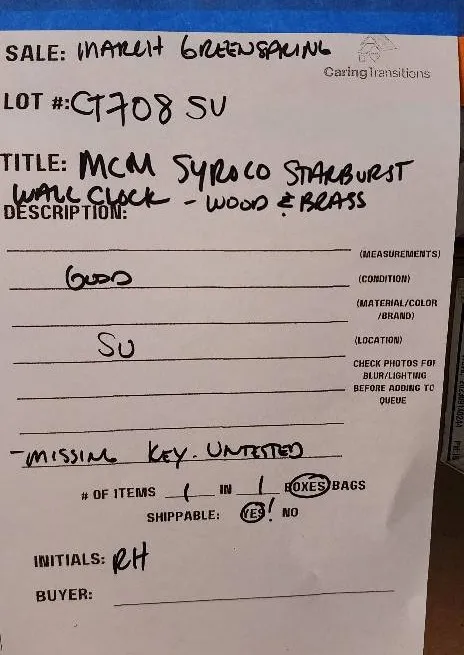 SALE: MARCH GREENSPRING
CaringTransitions
LOT #: CT708 SU
TITLE: MCM SYROCO STARBURST
WALL CLOCK - WOOD & BRASS
DESCRIPTION:
(MEASUREMENTS)
GOOD (CONDITION)
(MATERIAL/COLOR
/BRAND)
SU (LOCATION)
CHECK PHOTOS FOR
BLUR/LIGHTING
BEFORE ADDING TO
QUEUE
- MISSING KEY. UNTESTED
# OF ITEMS 1 IN 1 BOXES BAGS
SHIPPABLE: YES! NO
INITIALS: RH
BUYER: